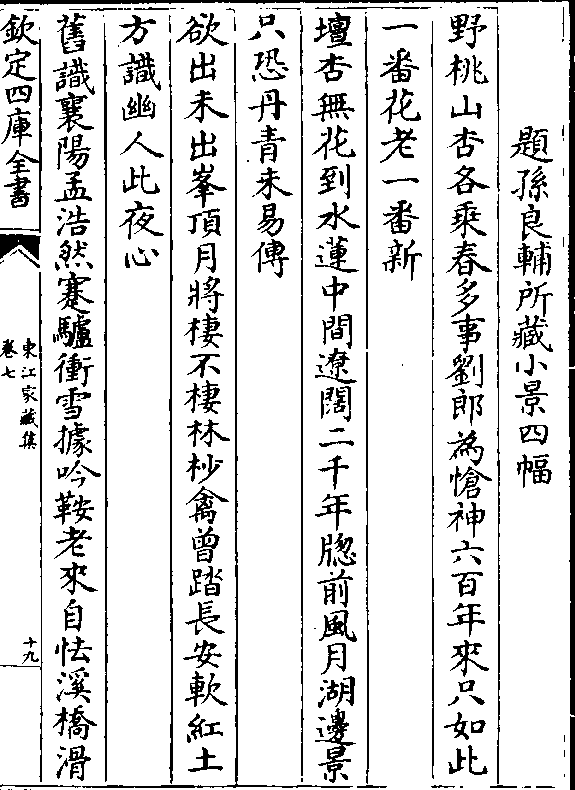 題孫良輔所藏小景四幅
野桃山杏各乘春多事劉郎為愴神六百年來只如此
一番花老一番新
壇杏無花到水蓮中間遼闊二千年牎前風月湖邊景
只恐丹青未易傳
欲出未出峯頂月將棲不棲林杪禽曾踏長安軟紅土
方識幽人此夜心
舊識襄陽孟浩然蹇驢衝雪據吟鞍老來自怯溪橋滑
欽定四庫全書
東江家藏集
卷七
十九